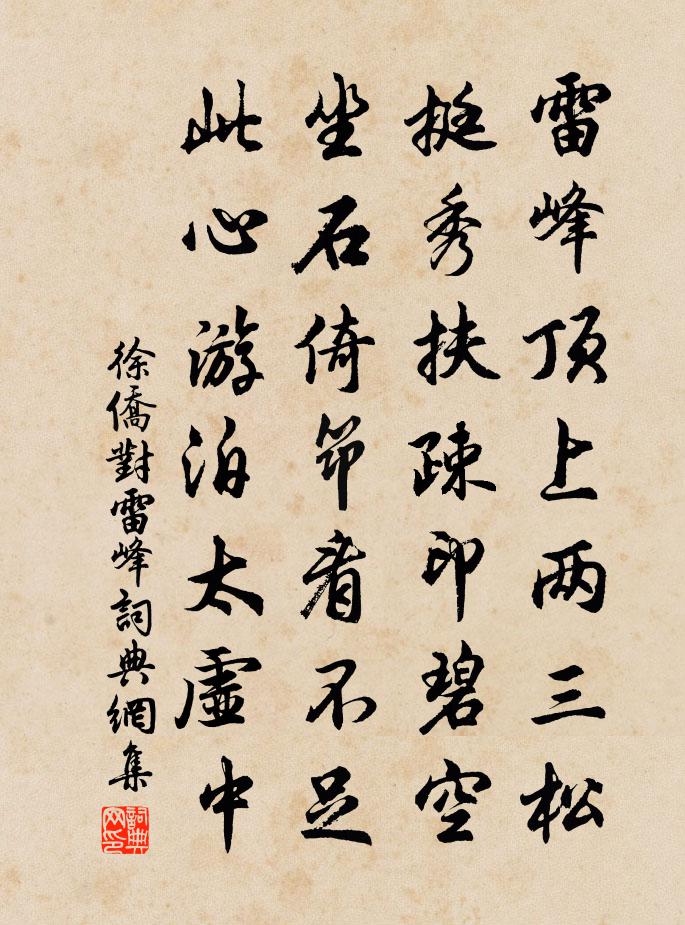 雷峰顶上两三松
挺秀扶疎印碧空
坐石倚笻看不足
此心游泊太虚中
徐僑對雷峰詞典網集
詞典网印